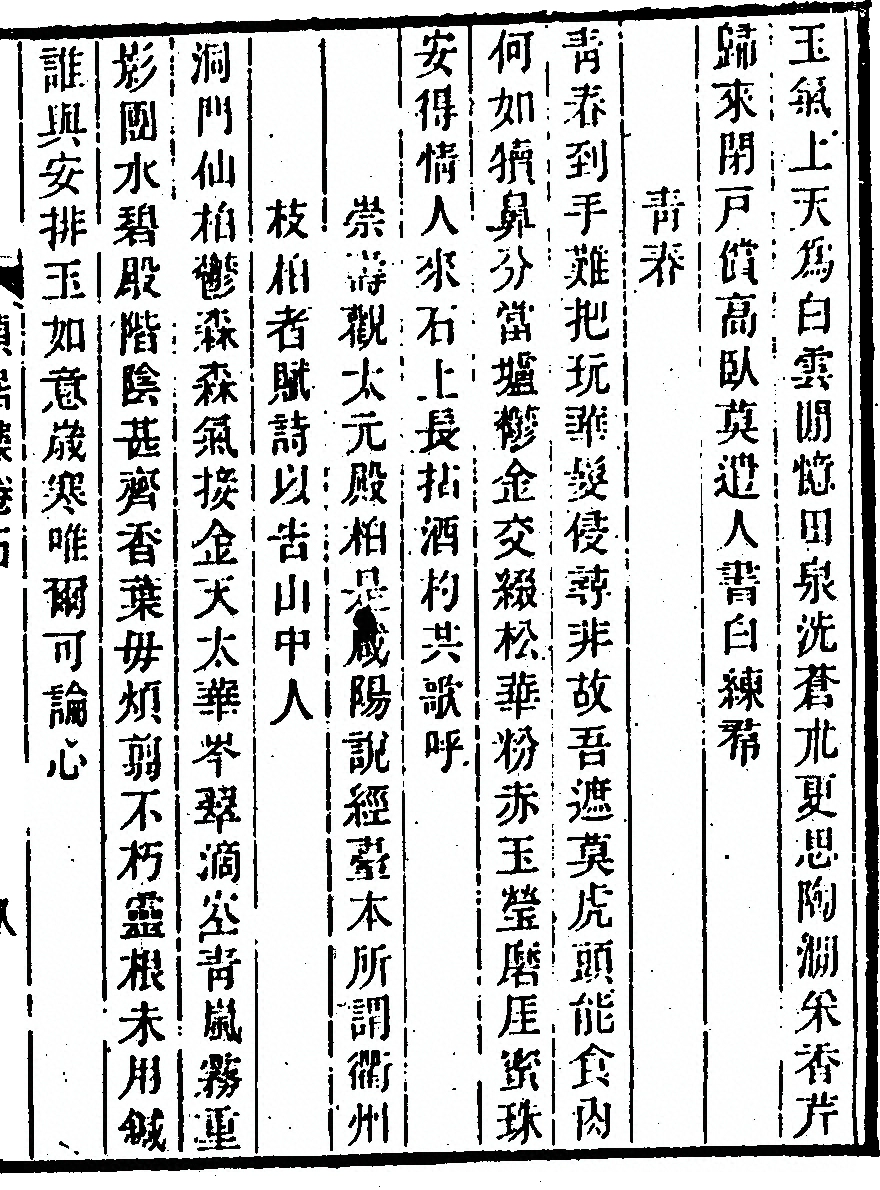 玉氣上天爲白雲閒憶田泉洗蒼朮夏思陶㶎采香芹
歸來閉戸償高臥莫遣人書白練帬
青春
青春到手難把玩華髮侵尋非故吾遮莫虎頭能食肉
何如犢鼻分當壚鬱金交綴松華粉赤玉瑩磨厓蜜珠
安得情人來石上長拈酒杓共歌呼
崇壽觀太元殿柏是咸陽說經臺本所謂衢州
枝柏者賦詩以告山中人
洞門仙柏鬱森森氣接金天太華岑翠滴空青嵐霧重
影團水碧殿階陰甚齊香葉毋煩翦不朽靈根未用鍼
誰與安排玉如意歲寒唯爾可論心